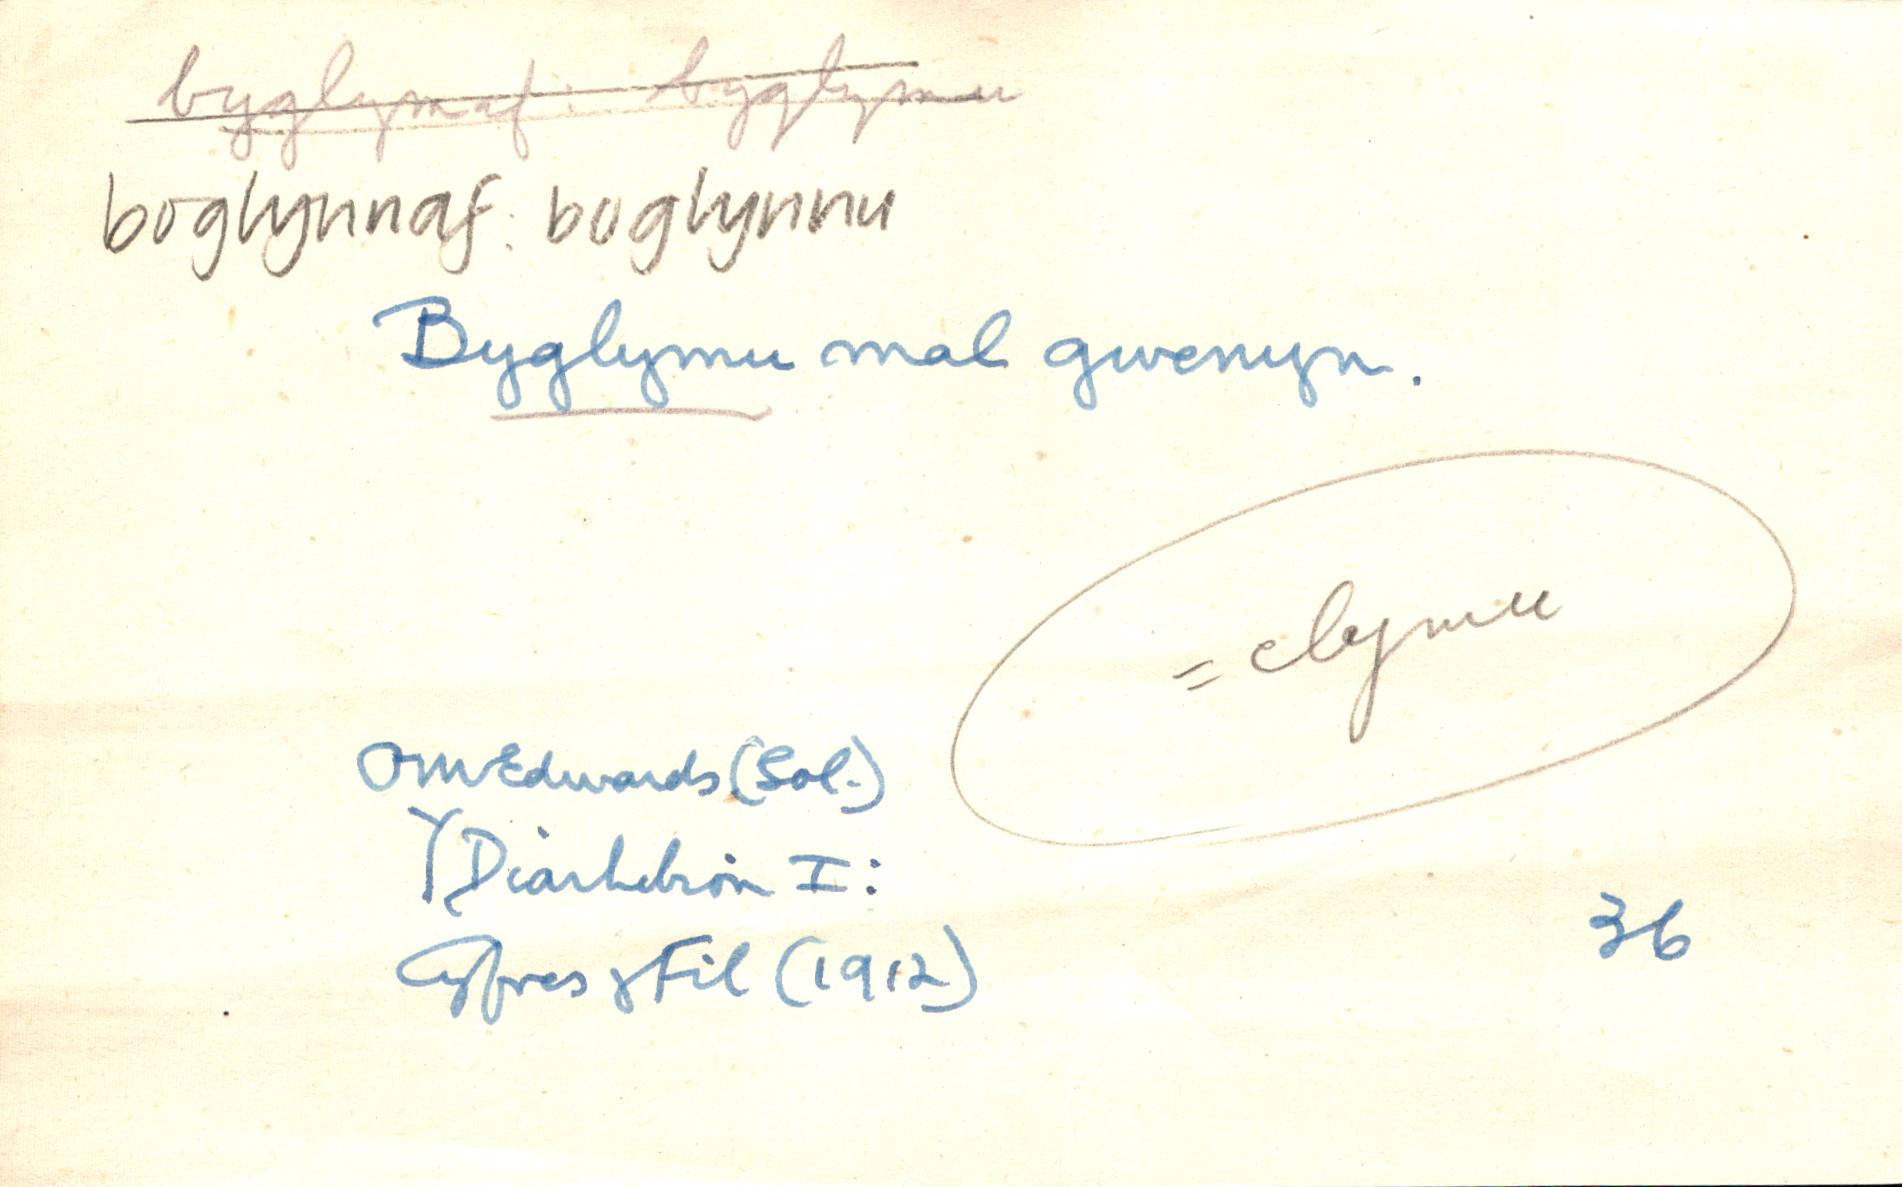 byglymaf : byglymu
boglynnaf : boglynnu
Byglymu mal gwenyn.
= clymu
OM Edwards (Gol.)
Y Diarhebion I:
Cyfres y Fil (1912)
36